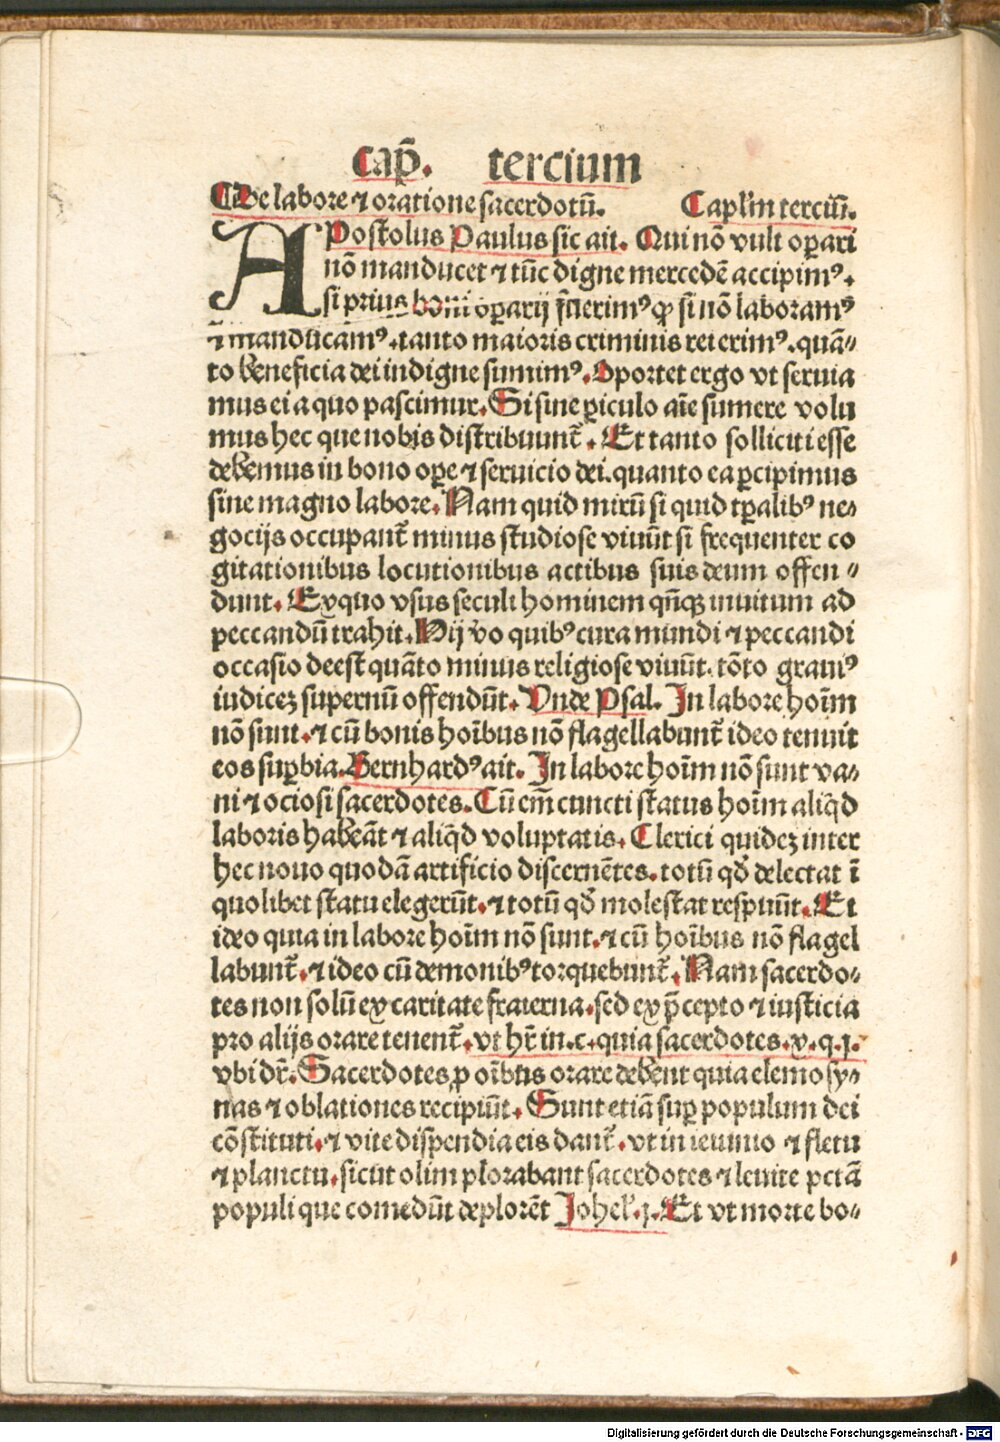 Cap̃. tercium
De labore ⁊ oratione sacerdotũ. Caplm̃ terciũ.
APostolus Paulus sic ait. Qui nõ vult oꝑari
nõ manducet ⁊ tũc digne mercedẽ accipimꝰ.
si prius boni oꝑarij fũerimꝰ ꝙ si nõ laboramꝰ
⁊ manducamꝰ. tanto maioris criminis rei erimꝰ. quã⸗
to beneficia dei indigne sumimꝰ. Oportet ergo vt seruia
mus ei a quo pascimur. Si sine ꝑiculo aĩe sumere volu
mus hec que nobis distribuunt̃. Et tanto solliciti esse
debemus in bono oꝑe ⁊ seruicio dei. quanto ea ꝑcipimus
sine magno labore. Nam quid mirũ si quid tꝑalibꝰ ne⸗
gocijs occupant̃ minus studiose viuũt si frequenter co
gitationibus locutionibus actibus suis deum offen⸗
dunt. Ex quo vsus seculi hominem qñqꝫ inuitum ad
peccandũ trahit. Hij v̾o quibꝰ cura mundi ⁊ peccandi
occasio deest quãto minus religiose viuũt. tõto grauiꝰ
iudicez supernũ offendũt. Vnde Psal. In labore hoĩm
nõ sunt. ⁊ cũ bonis hoĩbus nõ flagellabunt̃ ideo tenuit
eos suꝑbia. Bernhardꝰ ait. In labore hoĩm nõ sunt va⸗
ni ⁊ ociosi sacerdotes. Cũ em̃ cuncti status hoĩm aliq̃d
laboris habeãt ⁊ aliq̃d voluptatis. Clerici quidez inter
hec nouo quodã artificio discernẽtes. totũ qđ delectat ĩ
quolibet statu elegerũt. ⁊ totũ qđ molestat respuũt. Et
ideo quia in labore hoĩm nõ sunt. ⁊ cũ hoĩbus nõ flagel
labunt̃. ⁊ ideo cũ demonibꝰ torquebunt̃. Nam sacerdo⸗
tes non solũ ex caritate fraterna. sed ex p̃cepto ⁊ iusticia
pro alijs orare tenent̃. vt hr̃ in. c. quia sacerdotes. x. q. j.
vbi dr̃. Sacerdotes ꝓ oĩbus orare debent quia elemosy⸗
nas ⁊ oblationes recipiũt. Sunt etiã suꝑ populum dei
cõstituti. ⁊ vite dispendia eis dant̃. vt in ieiunio ⁊ fletu
⁊ planctu. sicut olim plorabant sacerdotes ⁊ leuite pctã
populi que comedũt deplorẽt Johel̃. j. Et vt morte bo⸗
Digitalisierung gefördert durch die Deutsche Forschungsgemeinschaft - DFG